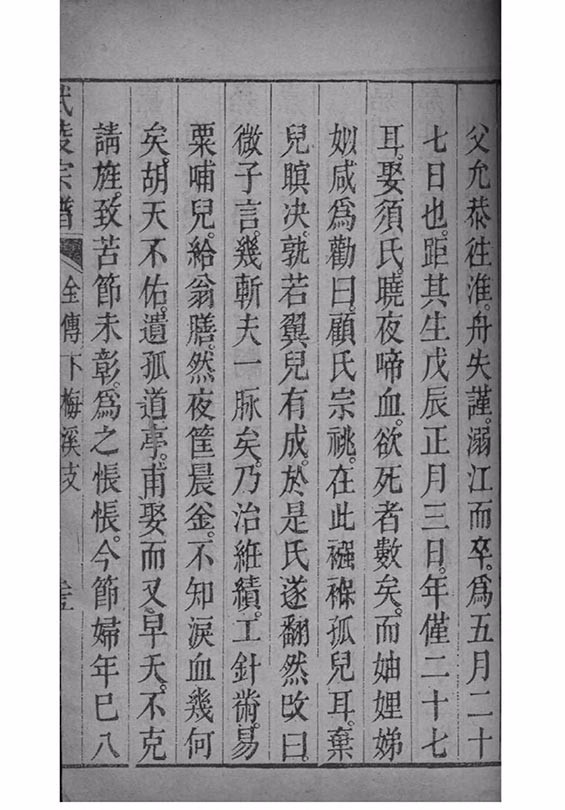 父允恭往淮。舟失謹。溺江而卒。爲五月二十
七日也。距其生戊辰正月三日。年僅二十七
耳。娶須氏。曉夜啼血。欲死者數矣。而妯娌娣
姒咸爲勸曰。顧氏宗祧。在此襁褓孤兒耳。棄
兒瞑决。孰若翼兒有成。於是氏遂翻然改曰。
微子言。幾斬夫一脉矣。乃治維績。工針黹。易
粟哺兒。給翁膳。然夜筐晨釜。不知淚血幾何
矣。胡天不佑。遺孤道亭。甫娶而又早夭。不克
請旌。致苦節未彰。爲之悵悵。今節婦年已八
武陵宗譜 全傳 下梅溪支